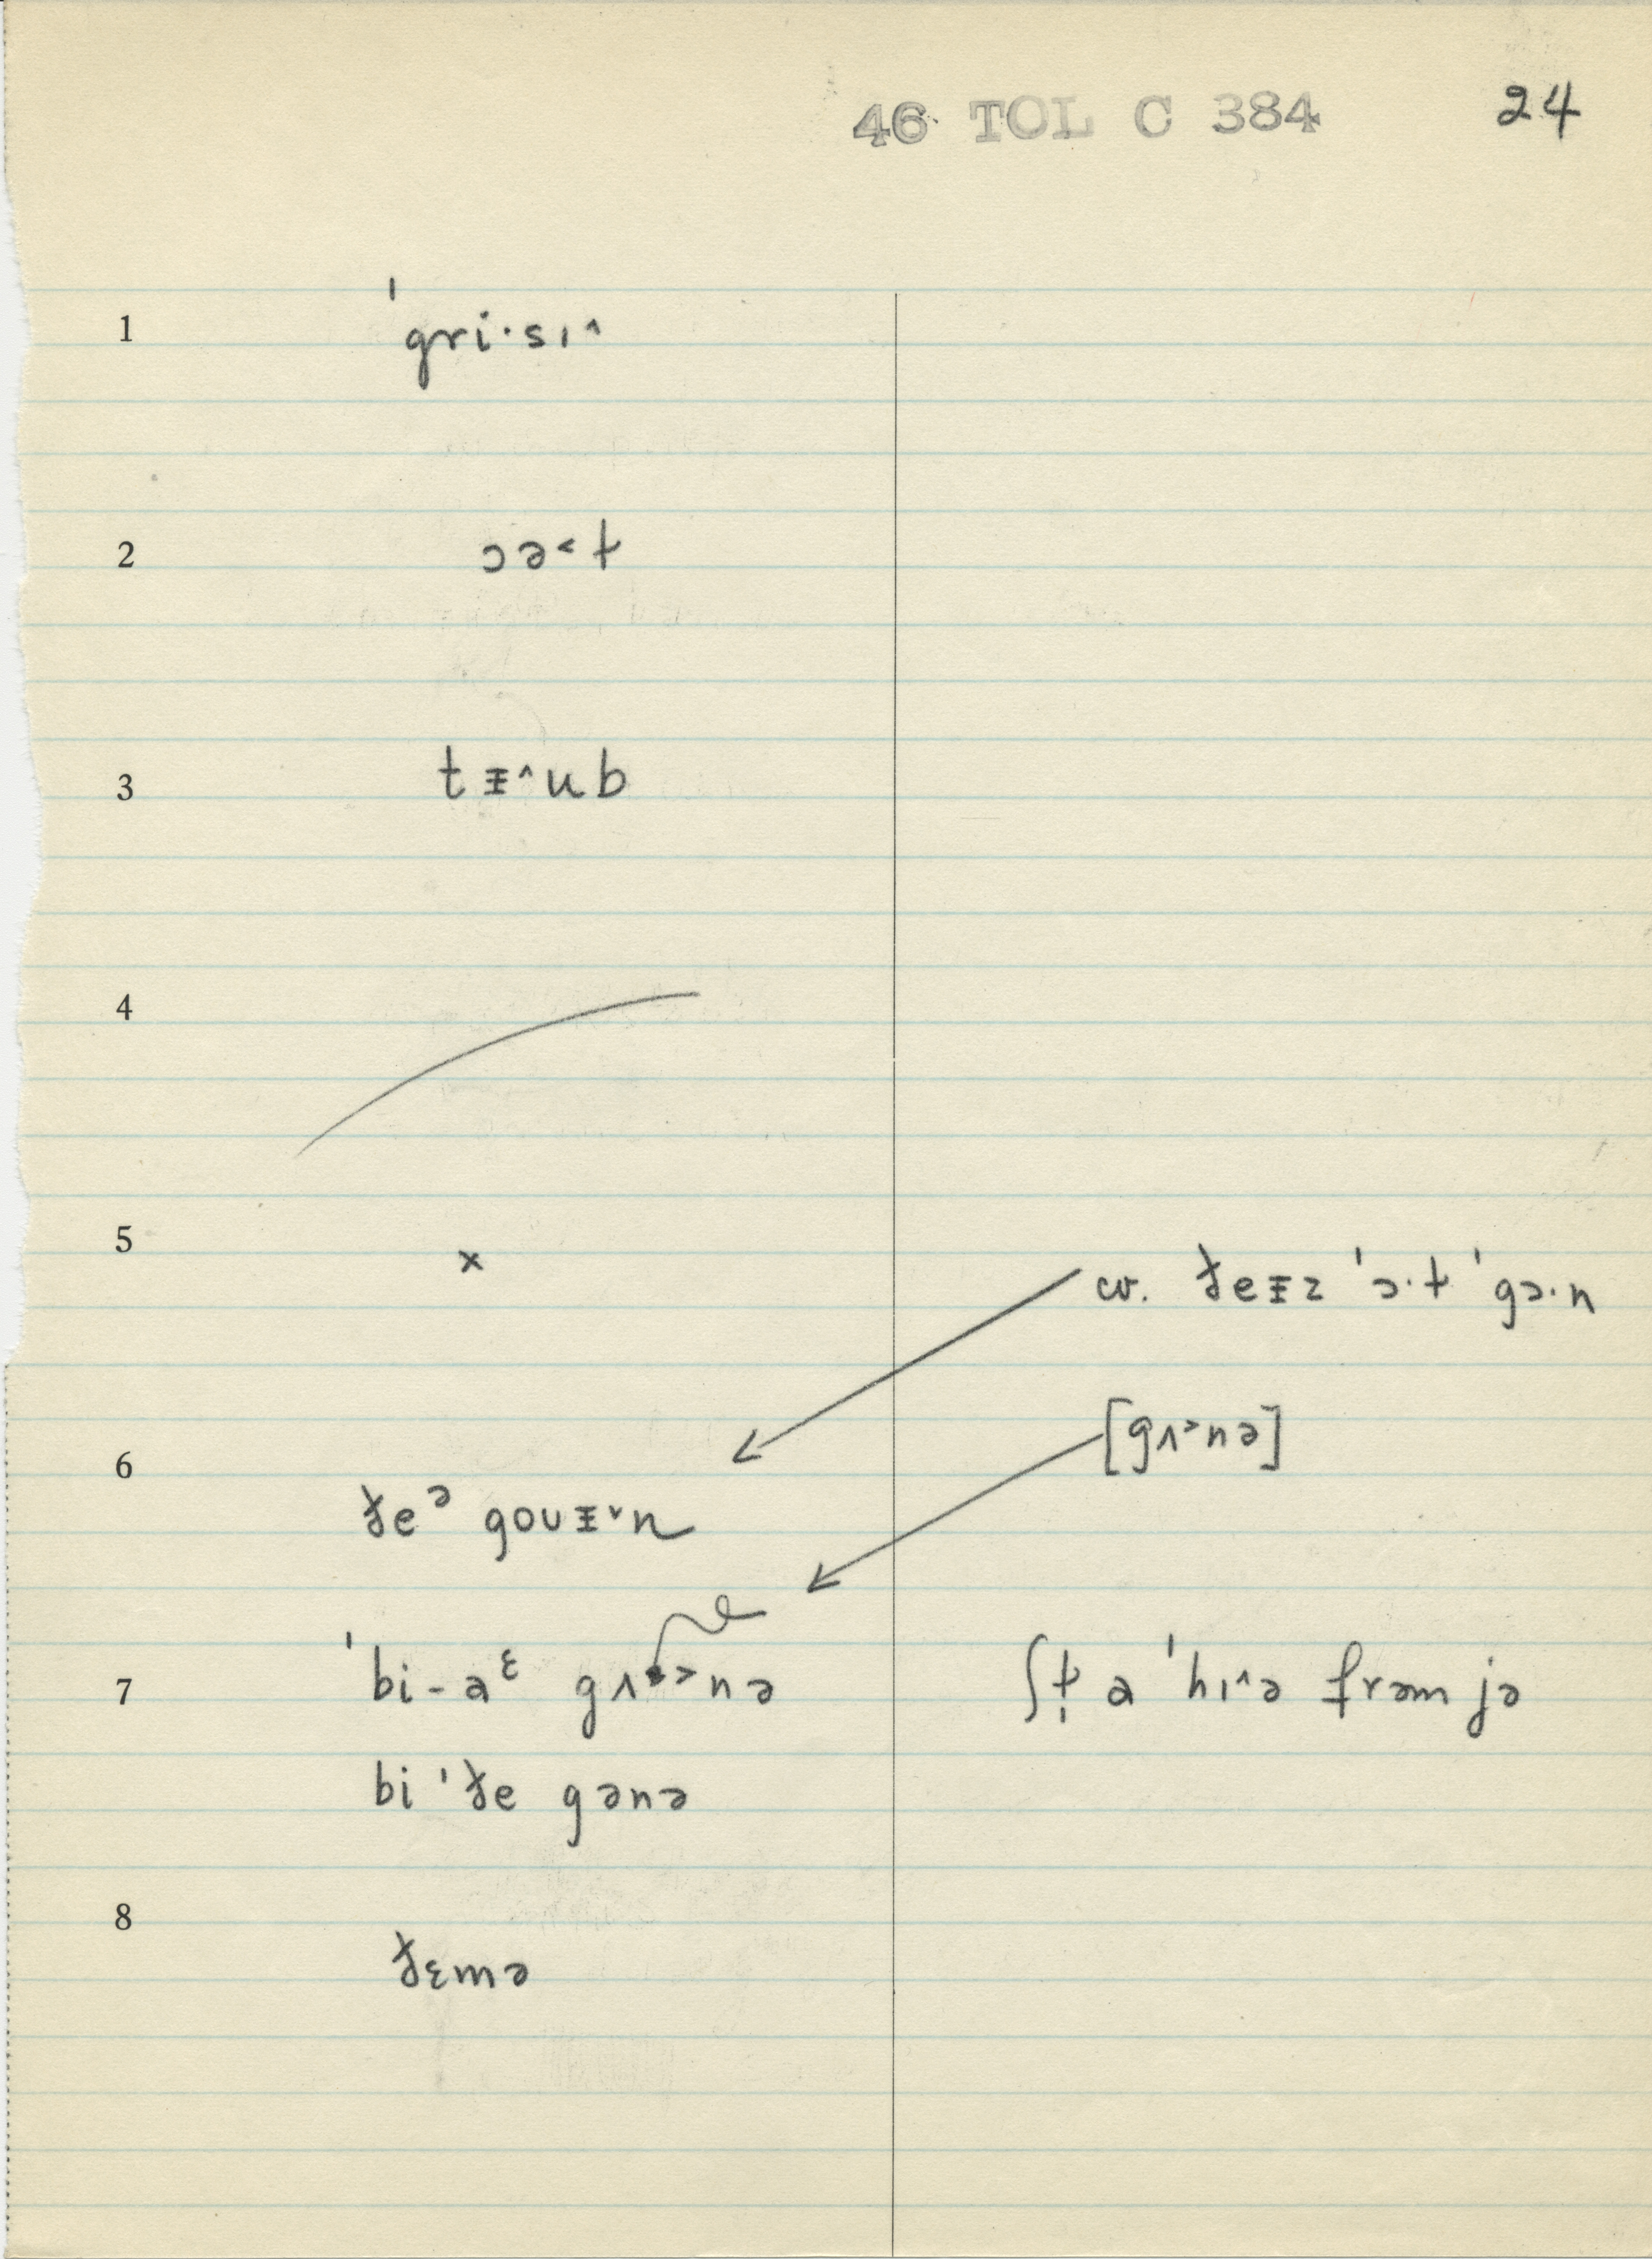 46 TOL C 384 24
1 ˈgri·sɪ˄
2 ɔə˂t
3 tᵻ˄ub
4
5 × cv. ðeᵻz ˈɔ·t ˈgɔ·n
[gʌ˃nə]
6 ðeᵊ goᴜᵻ˅n
7 ˈbi-aᵋ gʌ˃nə ʃt̩ a ˈhɪ˄ə frəm jə
bi ˈðe gənə
8 ðɛmə